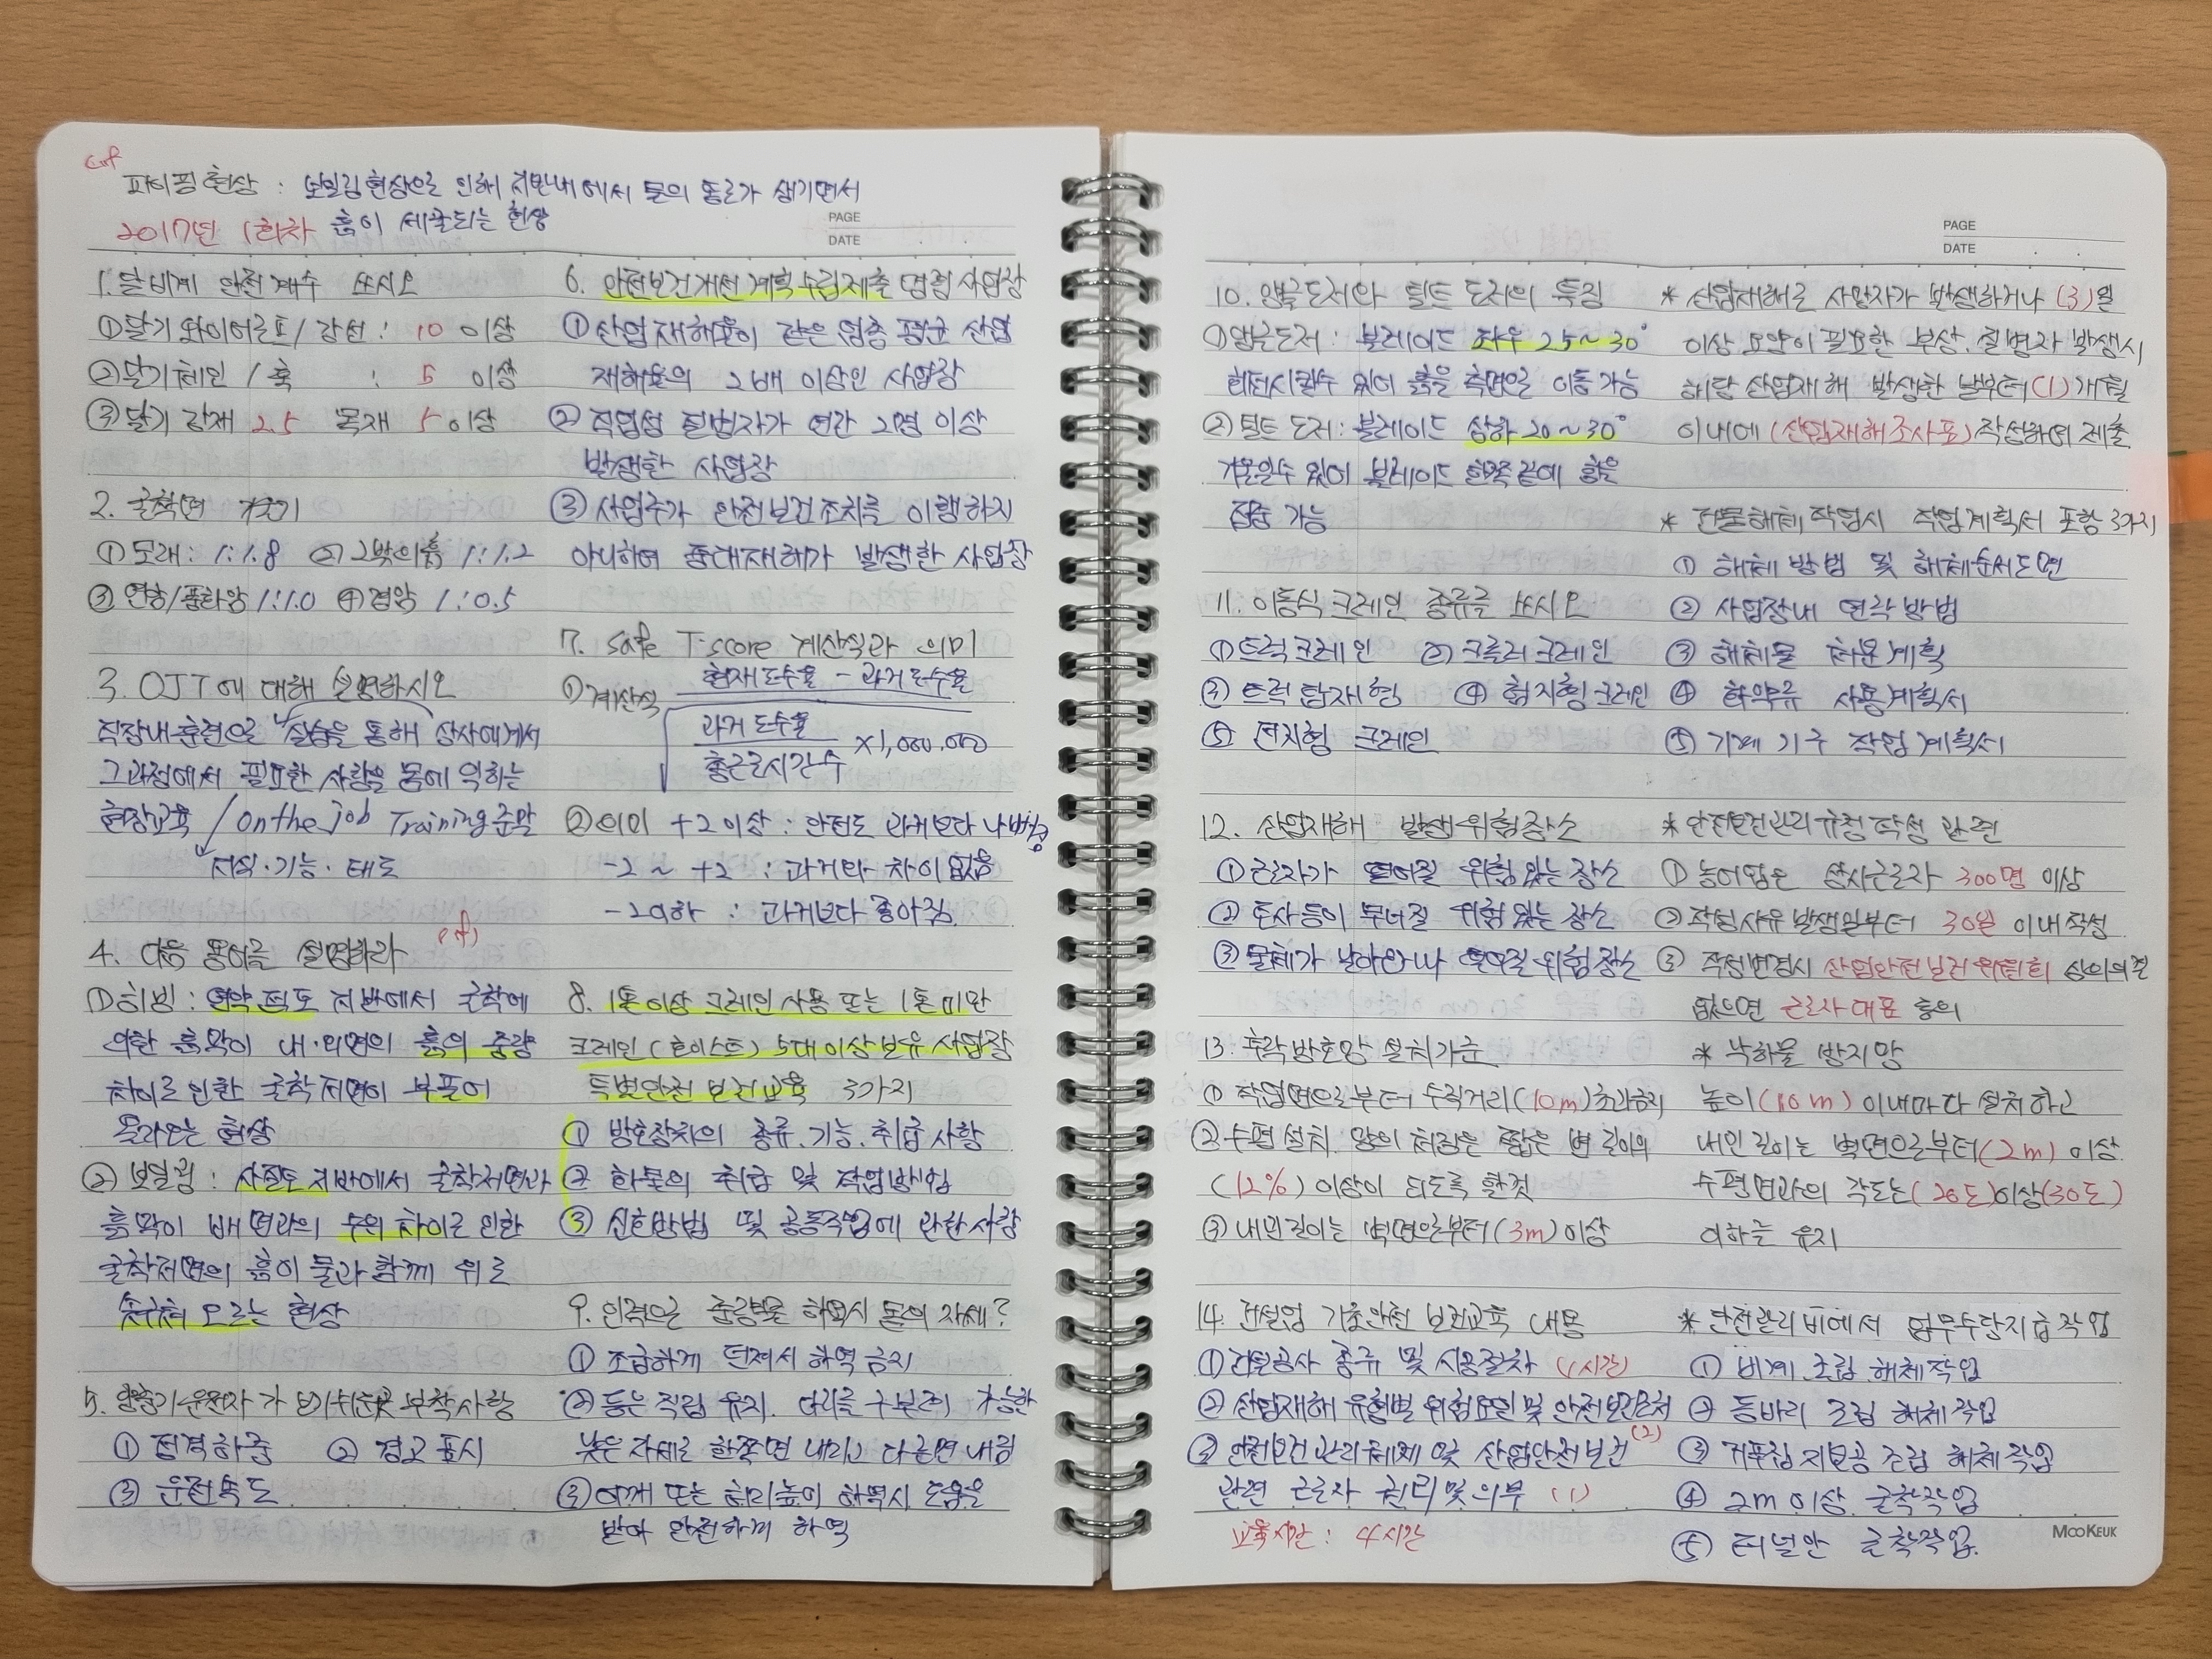 cf
파이핑 현상 : 보일링 현상으로 인해 지반내에서 물의 통로가 생기면서
2017년 1회차 흙이 세굴되는 현상
PAGE
DATE
1. 달비계 안전계수 쓰시오
① 달기와이어로프/강선 : 10 이상
② 달기체인 / 훅 : 5 이상
③ 달기 강재 2.5 목재 5 이상
2. 굴착면 기울기
① 모래 : 1:1.8 ② 그밖의흙 1:1.2
③ 연암/풍화암 1:1.0 ④ 경암 1:0.5
3. OJT에 대해 설명하시오
직장내 훈련으로 실습을 통해 상사에게서
그과정에서 필요한 사항을 몸에 익히는
현장교육 / On the job Training 준말
지식·기능·태도
4. 다음 용어를 설명하라
① 히빙 : 연약 점토 지반에서 굴착에
의한 흙막이 내·외면의 흙의 중량
차이로 인한 굴착저면이 부풀어
올라오는 현상
② 보일링 : 사질토 지반에서 굴착저면과
흙막이 배면과의 수위 차이로 인한
굴착저면의 흙이 물과 함께 위로
솟구쳐 오르는 현상
5. 양중기 운전자가 보기쉬운곳 부착사항
① 정격하중 ② 경고표시
③ 운전속도
6. 안전보건개선계획 수립제출 명령 사업장
① 산업재해율이 같은 업종 평균 산업
재해율의 2배 이상인 사업장
② 직업성 질병자가 연간 2명 이상
발생한 사업장
③ 사업주가 안전보건조치를 이행하지
아니하여 중대재해가 발생한 사업장
7. Safe T-score 계산식과 의미
① 계산식 현재도수율 - 과거도수율
과거 도수율
총근로시간수 ×1,000,000
② 의미 +2 이상 : 안전도 과거보다 나빠짐
-2 ~ +2 : 과거와 차이 없음
-2이하 : 과거보다 좋아짐
cf)
8. 1톤이상 크레인 사용 또는 1톤 미만
크레인(호이스트) 5대이상 보유 사업장
특별안전 보건교육 3가지
① 방호장치의 종류, 기능, 취급 사항
② 화물의 취급 및 작업방법
③ 신호방법 및 공동작업에 관한 사항
9. 인력으로 중량물 하역시 몸의 자세?
① 조급하게 던져서 하역 금지
② 등은 직립 유지, 다리를 구부려 가능한
낮은 자세로 한쪽면 내리고 다른면 내림
③ 어깨 또는 허리높이 하역시 도움을
받아 안전하게 하역
PAGE
DATE
10. 앵글도저와 틸트 도저의 특징
① 앵글도저 : 블레이드 좌우 25~30°
회전시킬수 있어 흙을 측면으로 이동 가능
② 틸트 도저 : 블레이드 상하 20~30°
기울일수 있어 블레이드 한쪽 끝에 힘을
집중 가능
11. 이동식 크레인 종류를 쓰시오
① 트럭크레인 ② 크롤러 크레인
③ 트럭 탑재형 ④ 험지형 크레인
⑤ 전지형 크레인
12. 산업재해 발생 위험장소
① 근로자가 떨어질 위험 있는 장소
② 토사 등이 무너질 위험 있는 장소
③ 물체가 날아오나 떨어질 위험장소
13. 추락방호망 설치기준
① 작업면으로부터 수직거리(10m)초과금지
② 수평 설치. 망의 처짐은 짧은 변 길이의
(12%) 이상이 되도록 할것
③ 내민길이는 벽면으로부터 (3m)이상
14. 건설업 기초안전 보건교육 내용
① 건설공사 종류 및 시공절차 (1시간)
② 산업재해 유형별 위험요인 및 안전보건조치 (2)
③ 안전보건 관리체제 및 산업안전보건
관련 근로자 권리 및 의무 (1)
교육시간 : 4시간
* 산업재해로 사업자가 발생하거나 (3)일
이상 요양이 필요한 부상, 질병자 발생시
해당 산업재해 발생한 날부터 (1)개월
이내에 (산업재해조사표) 작성하여 제출
* 건물해체 작업시 작업계획서 포함 3가지
① 해체 방법 및 해체순서도면
② 사업장내 연락방법
③ 해체물 처분계획
④ 화약류 사용계획서
⑤ 기계 기구 작업계획서
* 안전보건관리규정 작성 관련
① 농어업은 상시근로자 300명 이상
② 작성사유발생일부터 30일 이내작성
③ 작성변경시 산업안전보건위원회 심의의결
없으면 근로자대표 동의
* 낙하물 방지망
높이 (10m) 이내마다 설치하고
내민길이는 벽면으로부터 (2m) 이상
수평면과의 각도는 (20도)이상(30도)
이하는 유지
* 안전관리비에서 업무수당지급작업
① 비계 조립 해체작업
② 동바리 조립 해체 작업
③ 거푸집 지보공 조립 해체작업
④ 2m 이상 굴착작업
⑤ 터널안 굴착작업.
MOOKEUK